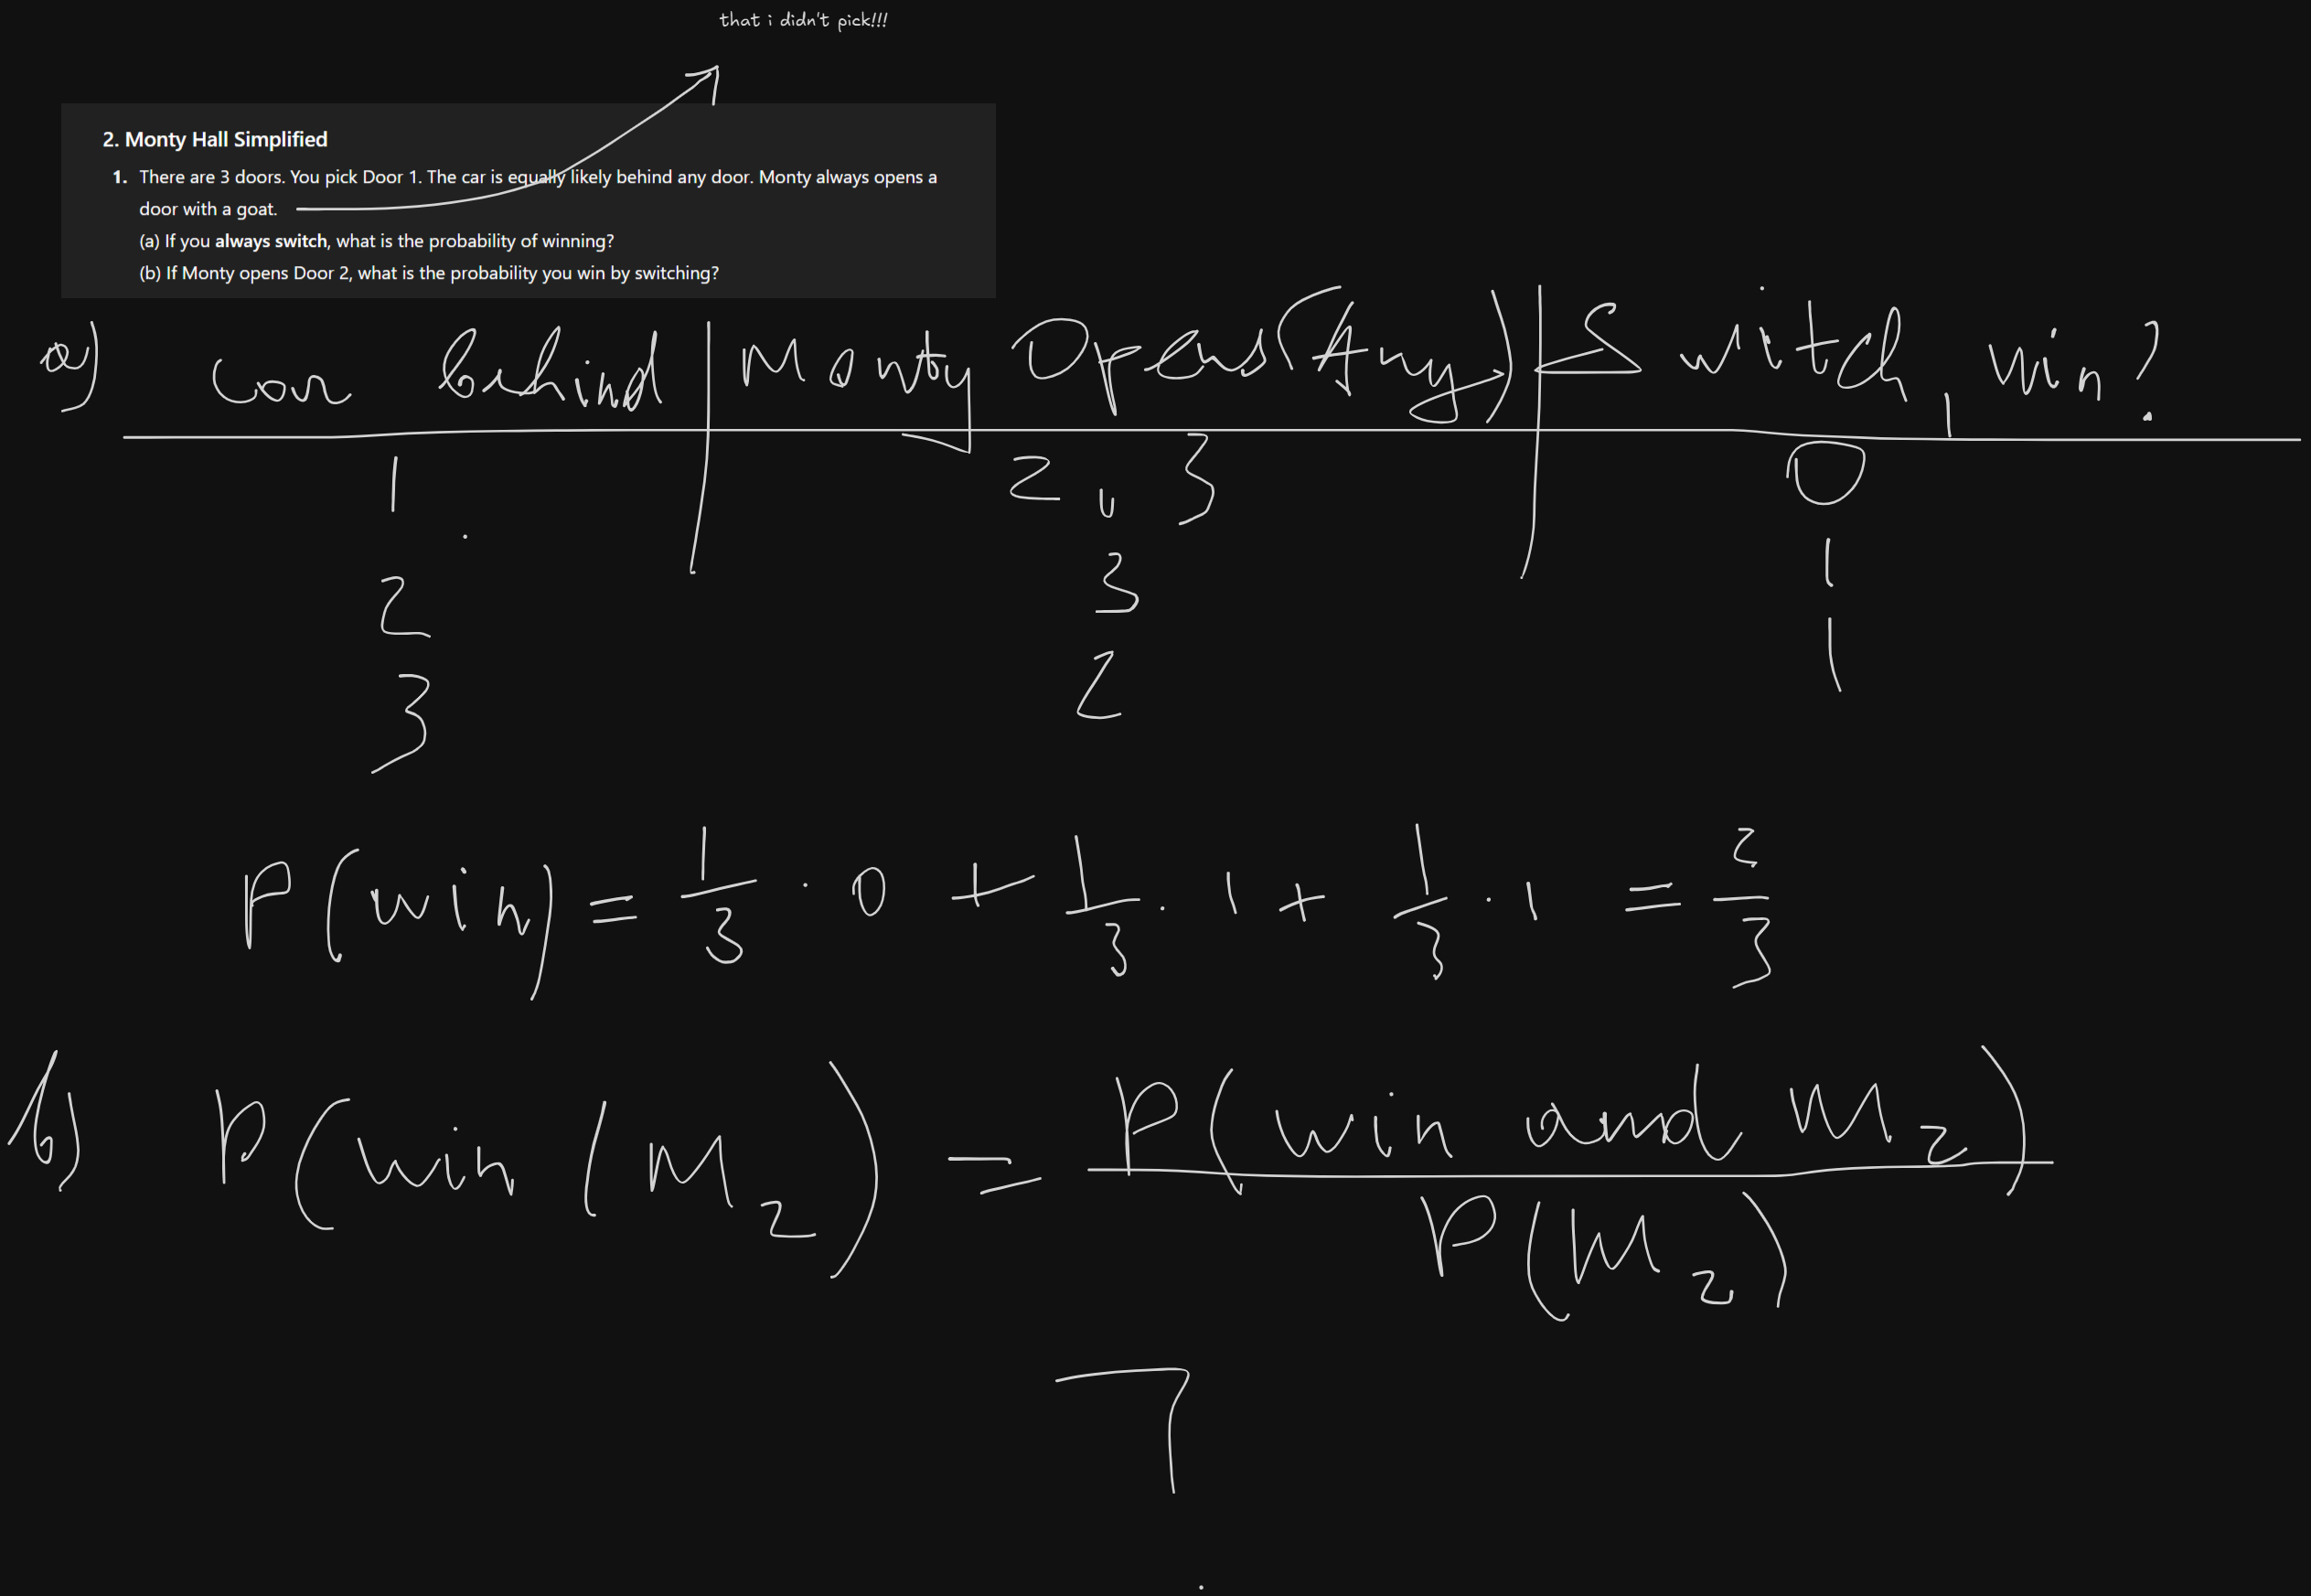 that i didn't pick!!!
2. Monty Hall Simplified
1. There are 3 doors. You pick Door 1. The car is equally likely behind any door. Monty always opens a
door with a goat.
(a) If you always switch, what is the probability of winning?
(b) If Monty opens Door 2, what is the probability you win by switching?
a) car behind | Monty Opens (Any) | Switch, win?
1 2, 3 0
2 3 1
3 2 1
P(win) = 1/3 · 0 + 1/3 · 1 + 1/3 · 1 = 2/3
b) P(win | M2) = P(win and M2) / P(M2)